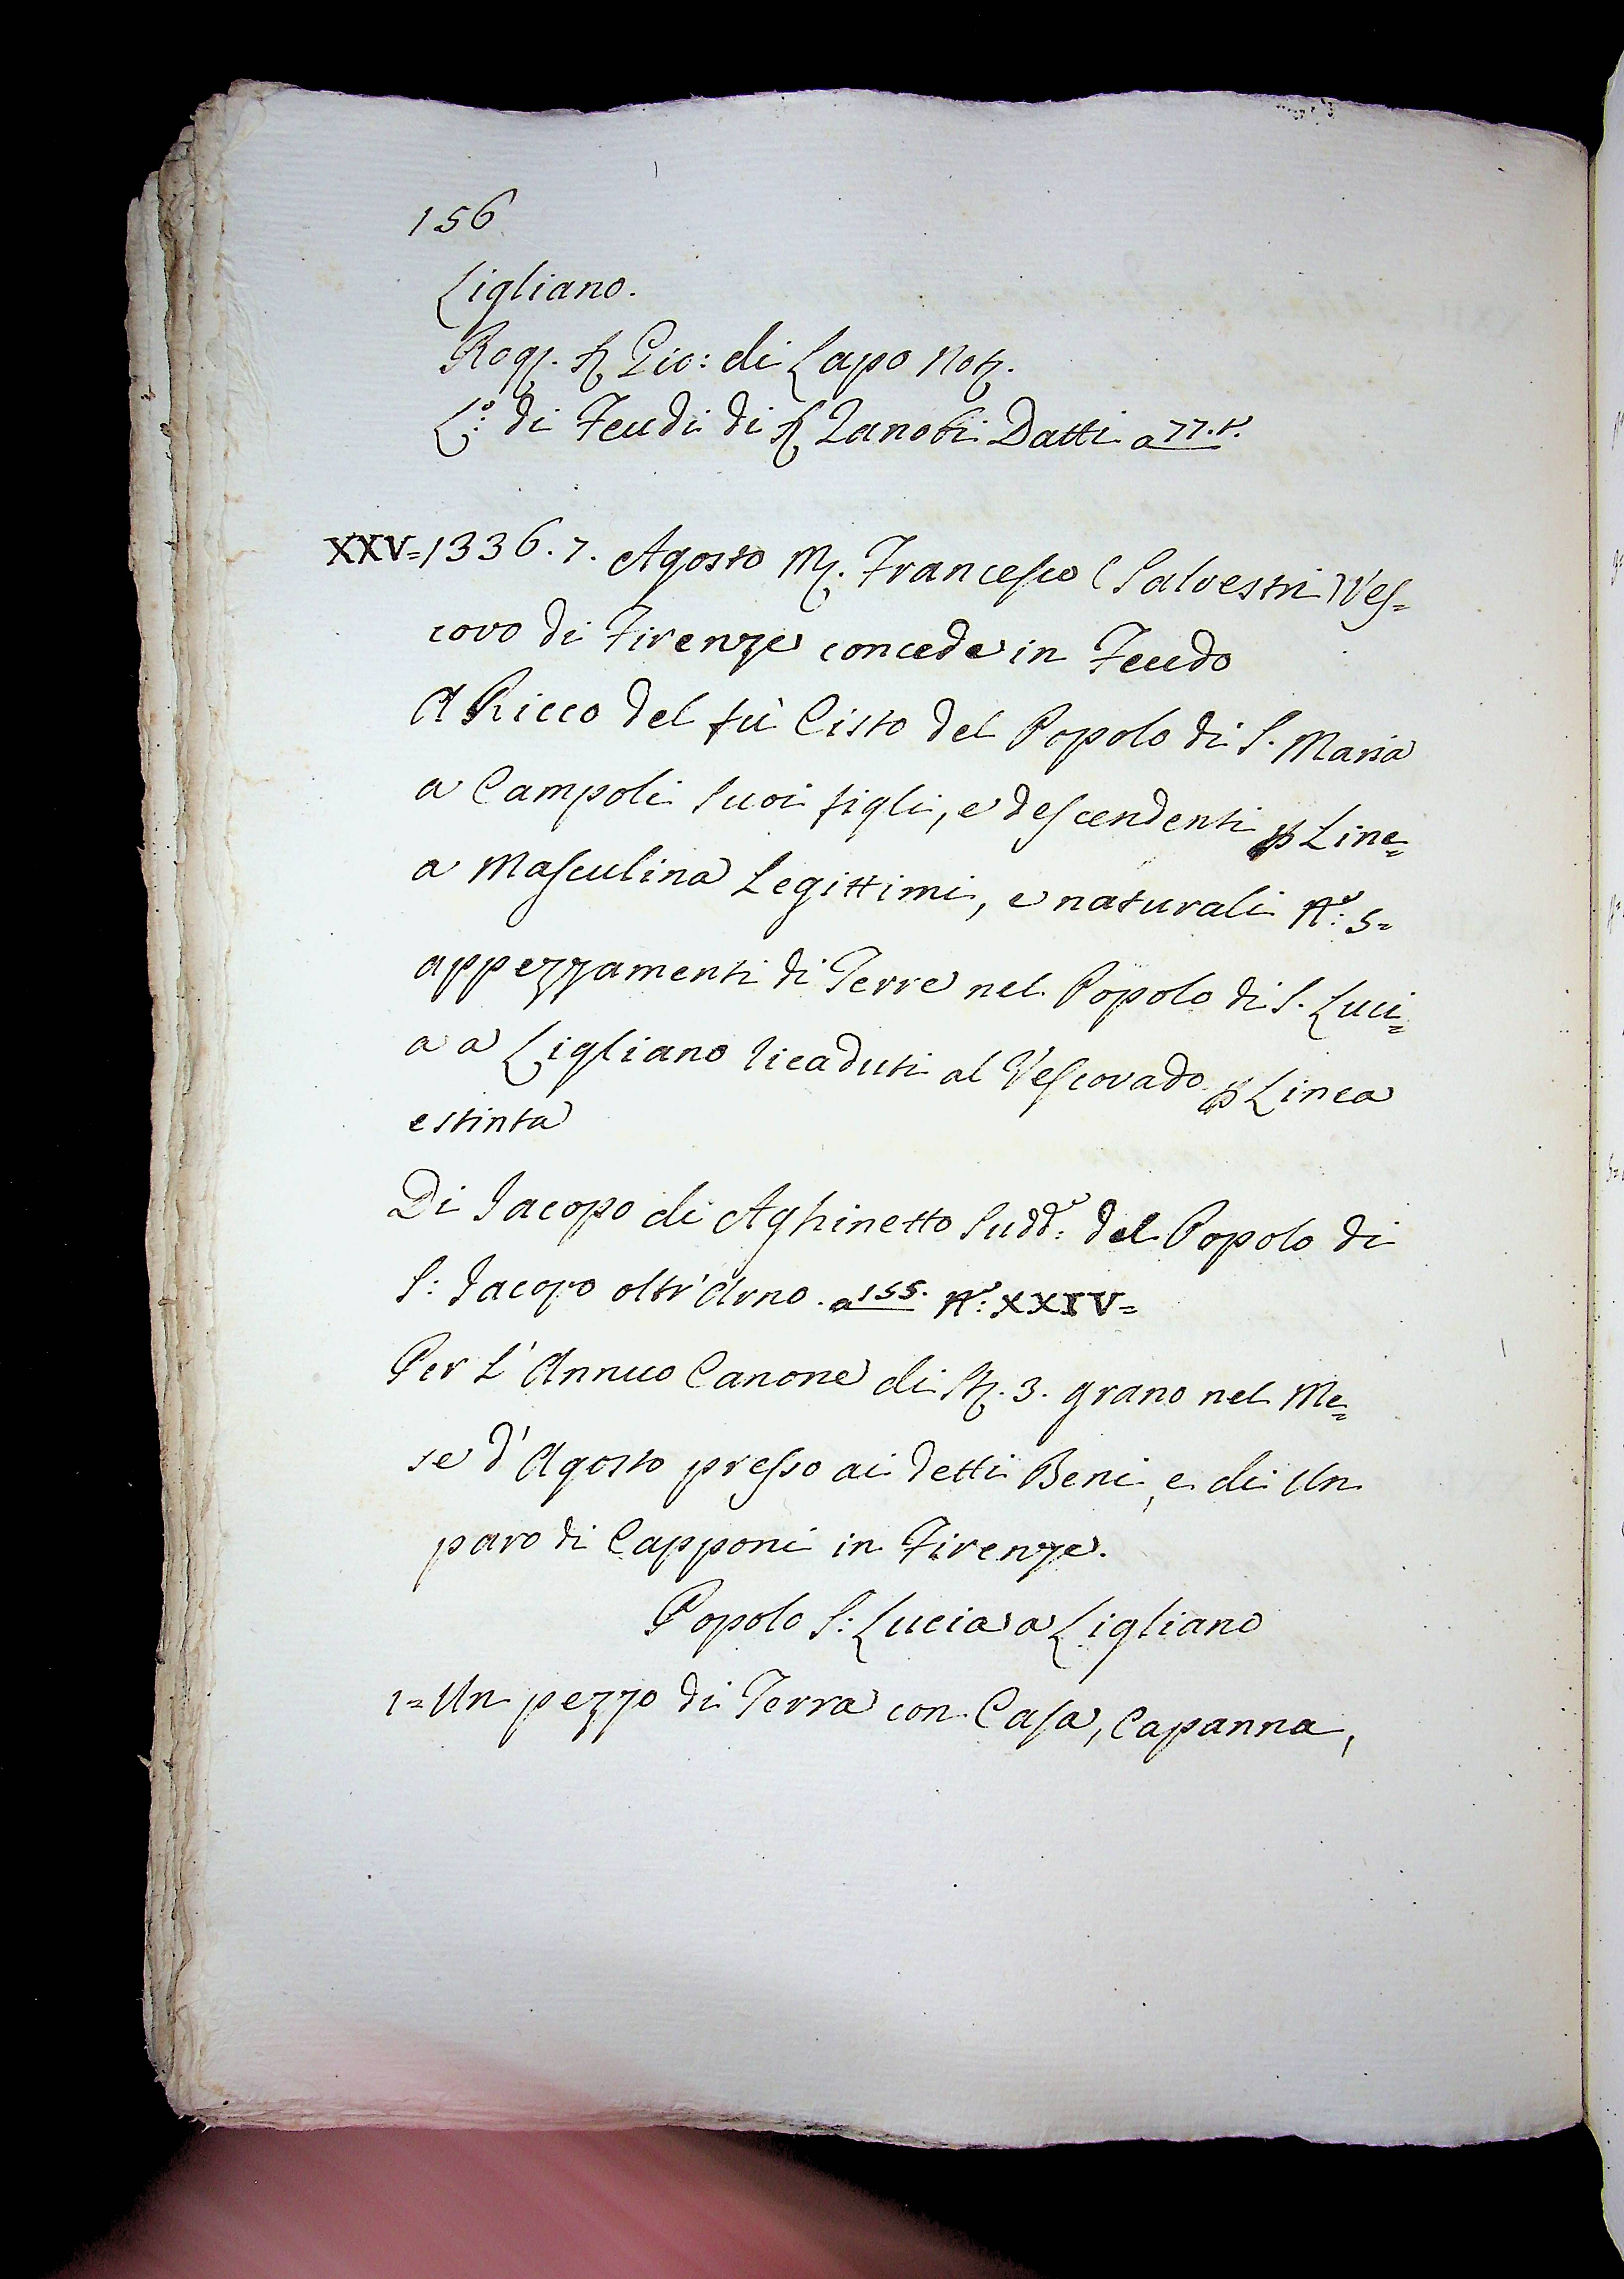 156
Ligliano.
Rog. S. Gio: di Lapo Not.
L.º: di Feudi di S. Zanobi Datti a 77. t.
XXV=1336. 7. Agosto M. Francesco (Salvestri) Ves=
covo di Firenze concede in Feudo
A Ricco del fù Cisto del Popolo di S. Maria
a Campoli suoi figli, e descendenti p Line=
a Masculina Legittimi, e naturali N.º: 5=
appezzamenti di Terre nel Popolo di S. Luci=
a a Ligliano ricaduti al Vescovado p Linea
estinta
Di Jacopo di Aghinetto Sudd.º: del Popolo di
S: Jacopo oltr'Arno. a 155. N.º: XXIV=
Per L'Annuo Canone di St. 3. grano nel Me=
se d'Agosto presso ai detti Beni, e di Un
paro di Capponi in Firenze.
Popolo S: Lucia a Ligliano
1= Un pezzo di Terra con Casa, Capanna,